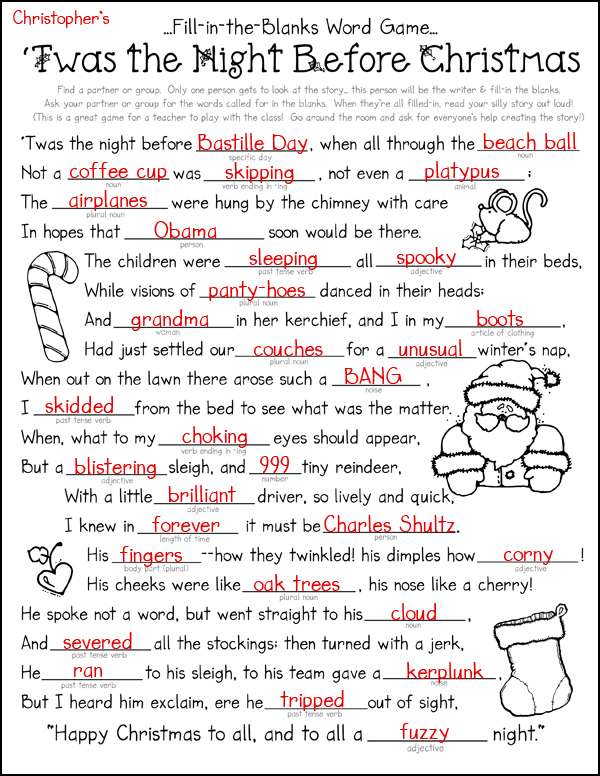 Christopher's
...Fill-in-the-Blanks Word Game...
'Twas the Night Before Christmas
Find a partner or group. Only one person gets to look at the story... this person will be the writer & fill-in the blanks.
Ask your partner or group for the words called for in the blanks. When they're all filled-in, read your silly story out loud!
(This is a great game for a teacher to play with the class! Go around the room and ask for everyone's help creating the story!)
'Twas the night before Bastille Day, when all through the beach ball
specific day noun
Not a coffee cup was skipping, not even a platypus;
noun verb ending in -ing animal
The airplanes were hung by the chimney with care
plural noun
In hopes that Obama soon would be there.
person
The children were sleeping all spooky in their beds,
past tense verb adjective
While visions of panty-hoes danced in their heads;
plural noun
And grandma in her kerchief, and I in my boots,
woman article of clothing
Had just settled our couches for a unusual winter's nap,
plural noun adjective
When out on the lawn there arose such a BANG,
noise
I skidded from the bed to see what was the matter.
past tense verb
When, what to my choking eyes should appear,
verb ending in -ing
But a blistering sleigh, and 999 tiny reindeer,
adjective number
With a little brilliant driver, so lively and quick,
adjective
I knew in forever it must be Charles Shultz.
length of time person
His fingers--how they twinkled! his dimples how corny!
body part (plural) adjective
His cheeks were like oak trees, his nose like a cherry!
plural noun
He spoke not a word, but went straight to his cloud,
noun
And severed all the stockings; then turned with a jerk,
past tense verb
He ran to his sleigh, to his team gave a kerplunk,
past tense verb noise
But I heard him exclaim, ere he tripped out of sight,
past tense verb
"Happy Christmas to all, and to all a fuzzy night."
adjective